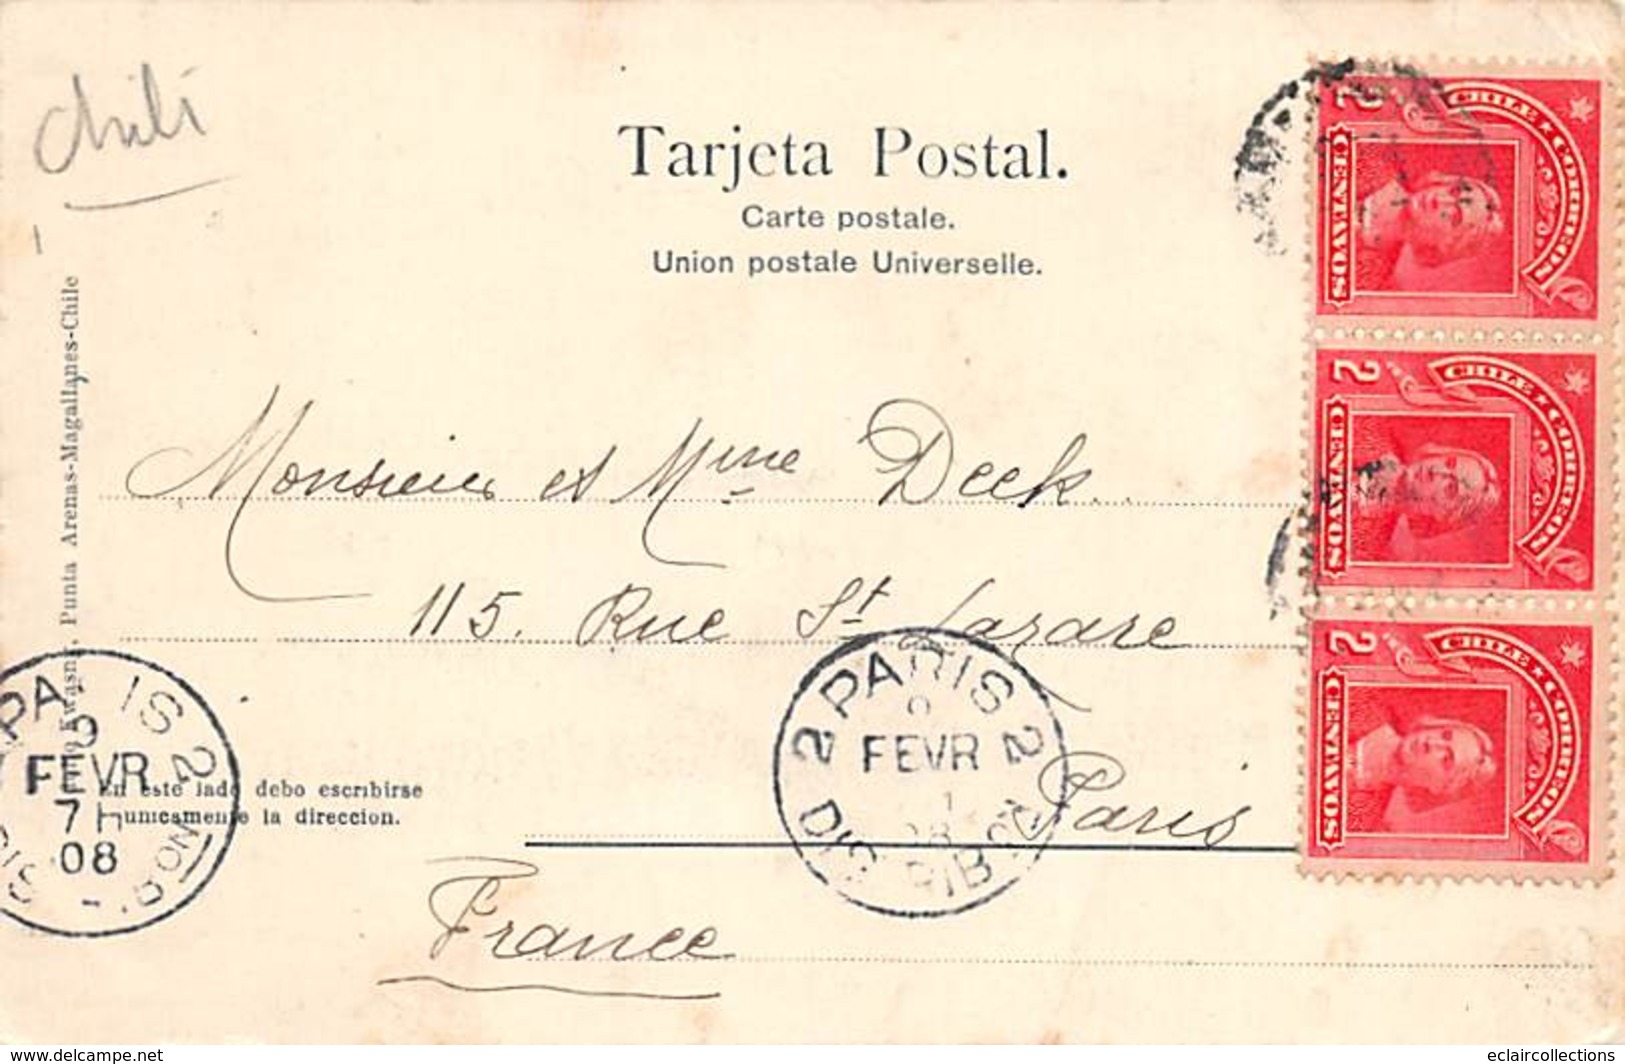 Chili
Tarjeta Postal.
Carte postale.
Union postale Universelle.
Kwasny, Punta Arenas-Magallanes-Chile
Monsieur et Mme Deek.
115. Rue St Lazare
Paris
France
En este lado debo escribirse
unicamente la direccion.
PARIS 2
FEVR
7H
08
DISTRIBON
PARIS 2
FEVR
08
DISTRIBON
CHILE CORREOS
2
CENTAVOS
CHILE CORREOS
2
CENTAVOS
CHILE CORREOS
2
CENTAVOS
www.delcampe.net
eclaircollections